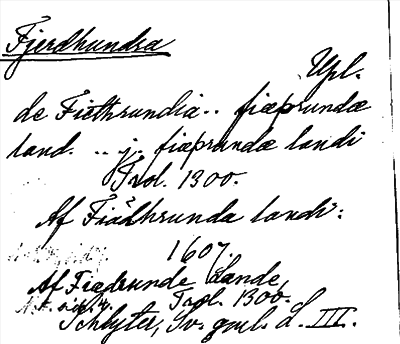 Fjerdhundra
Upl.
de Fiethrundia .. fiæþrundæ
land. .. j. fiæþrundæ landi
Trol. 1300.
Af Fiädhrunda landi:
1607.
Af Fiædrunde Lande,
Trol. 1300.
Schlyter, Sv. gml. L. III.